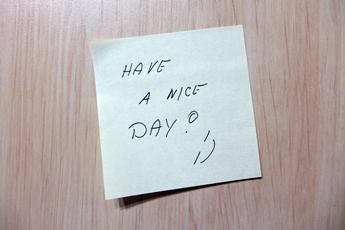 HAVE
A NICE
DAY!
;)